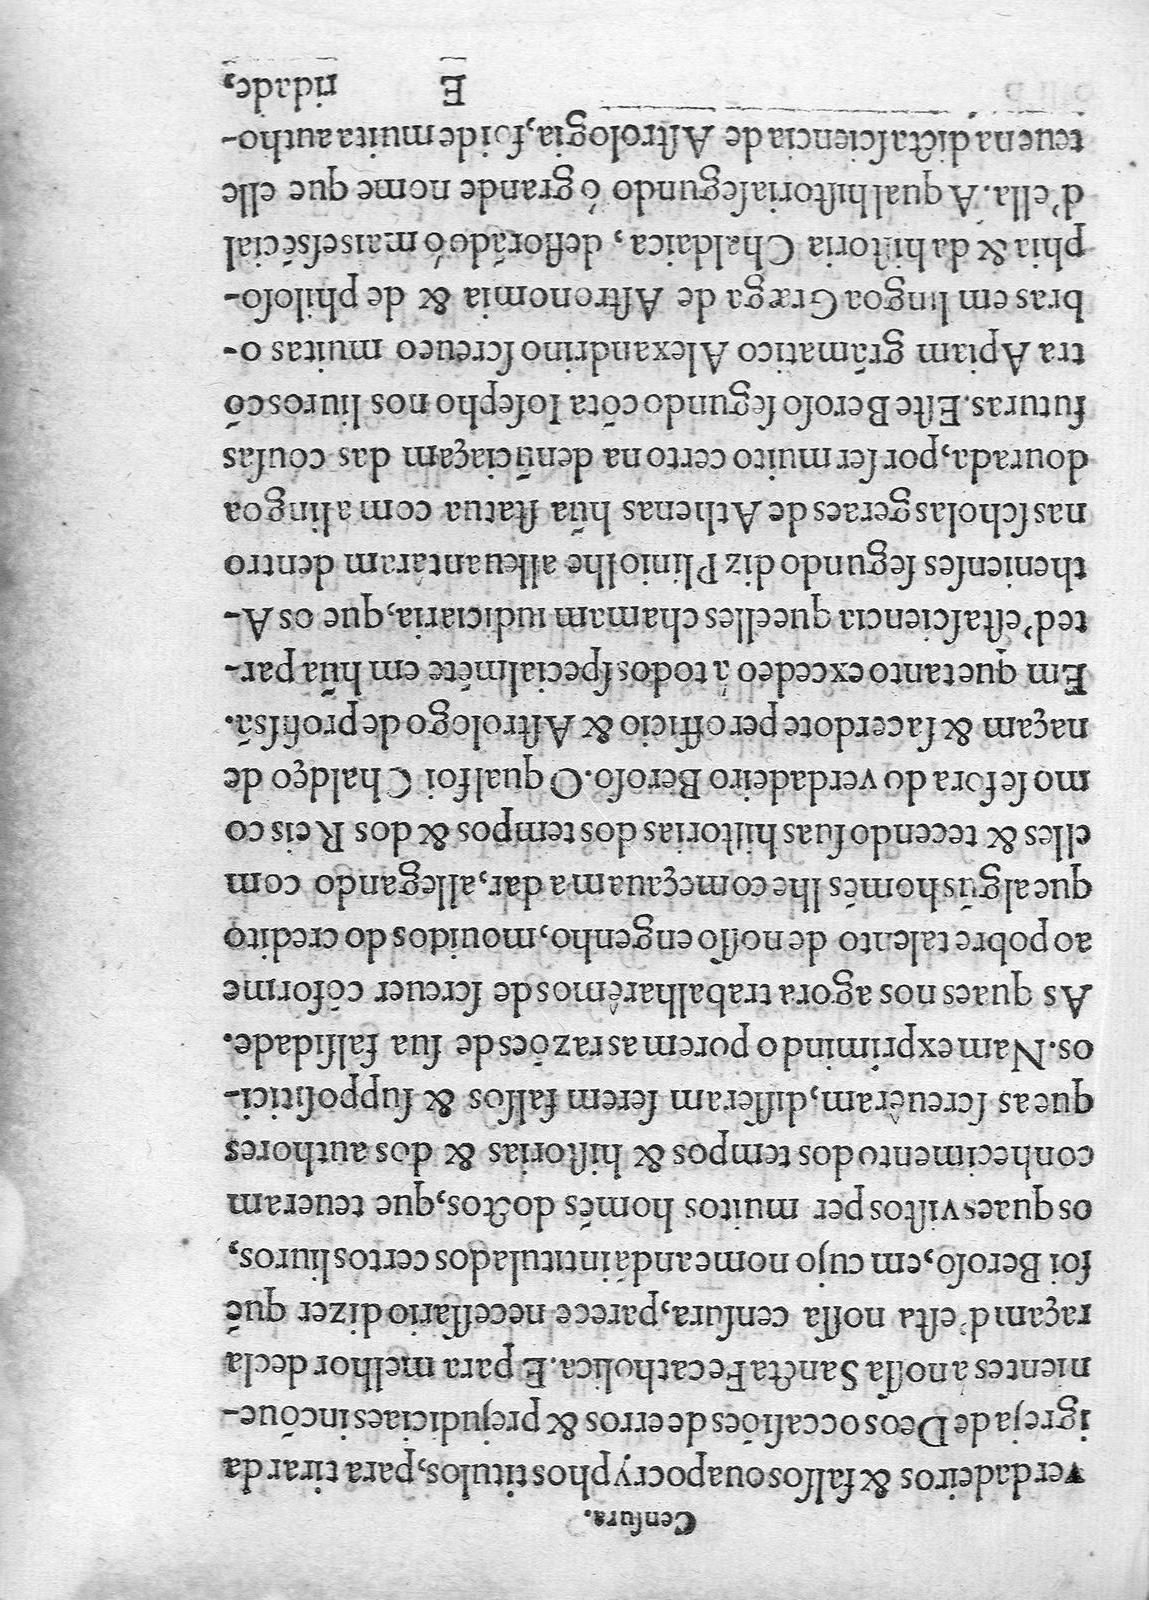 Cenſura.
verdadeiros & falſos ou apocryphos titulos, para tirar da
igreja de Deos occaſiões de erros & prejudiciaes incõue-
nientes a noſſa Sancta Fe catholica. E para melhor decla
raçam d'eſta noſſa cenſura, parece neceſſario dizer quẽ
foi Beroſo, em cujo nome andã intitulados certos liuros,
os quaes viſtos per muitos homẽs doctos, que teueram
conhecimento dos tempos & hiſtorias & dos authores
que as ſcreuêram, diſſeram ſerem falſos & ſuppoſitici-
os. Nam exprimindo porem as razões de ſua falſidade.
As quaes nos agora trabalharêmos de ſcreuer cõforme
ao pobre talento de noſſo engenho, mouidos do credito
que algũs homẽs lhe começauam a dar, allegando com
elles & tecendo ſuas hiſtorias dos tempos & dos Reis co
mo ſe fora do verdadeiro Beroſo. O qual foi Chaldęo de
naçam & ſacerdote per officio & Aſtrologo de profiſsã.
Em que tanto excedeo à todos ſpecialmẽte em hũa par-
te d'eſta ſciencia que elles chamam iudiciaria, que os A-
thenienſes ſegundo diz Plinio lhe alleuantâram dentro
nas ſcholas geraes de Athenas hũa ſtatua com a lingoa
dourada, por ſer muito certo na denũciaçam das couſas
futuras. Eſte Beroſo ſegundo cõta Ioſepho nos liuros cõ
tra Apiam grãmatico Alexandrino ſcreueo muitas o-
bras em lingoa Græga de Aſtronomia & de philoſo-
phia & da hiſtoria Chaldaica, deflorãdo ó mais eſsẽcial
d'ella. A qual hiſtoria ſegundo ó grande nome que elle
teue na dicta ſciencia de Aſtrologia, foi de muita autho-
E ridade,